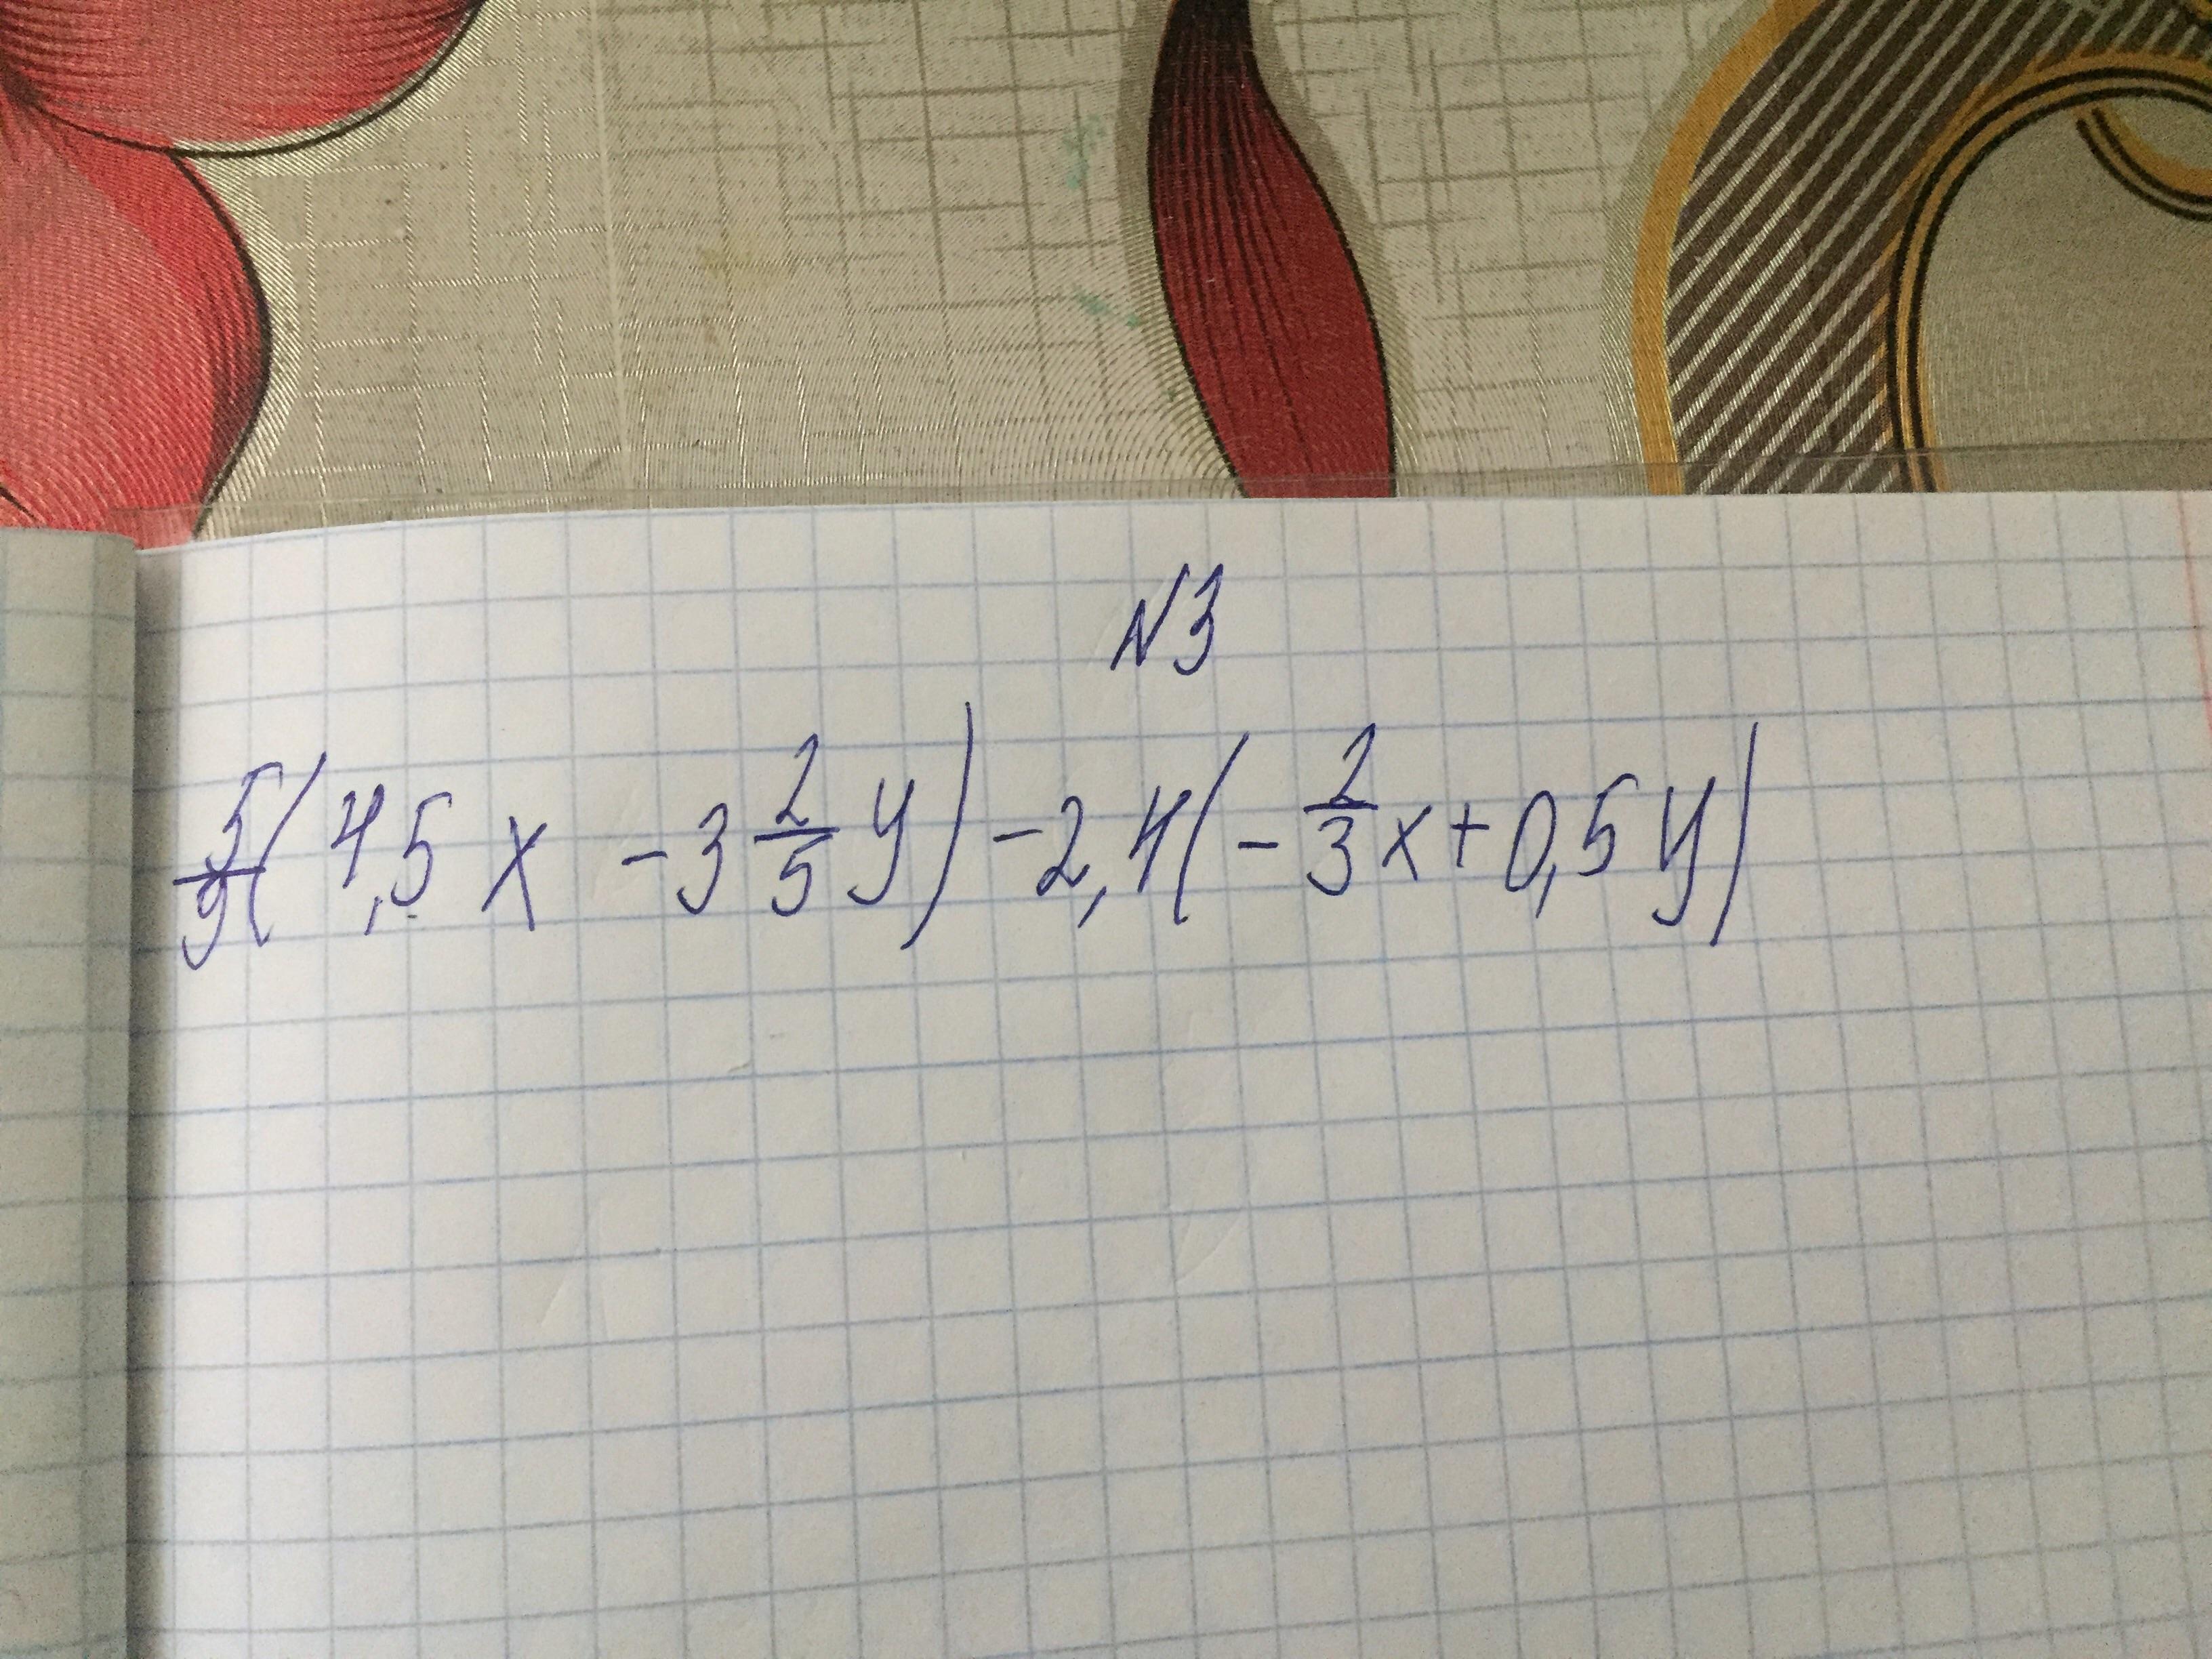 N3
5/9(4,5x - 3 2/5 y) - 2,4(- 2/3 x + 0,5y)